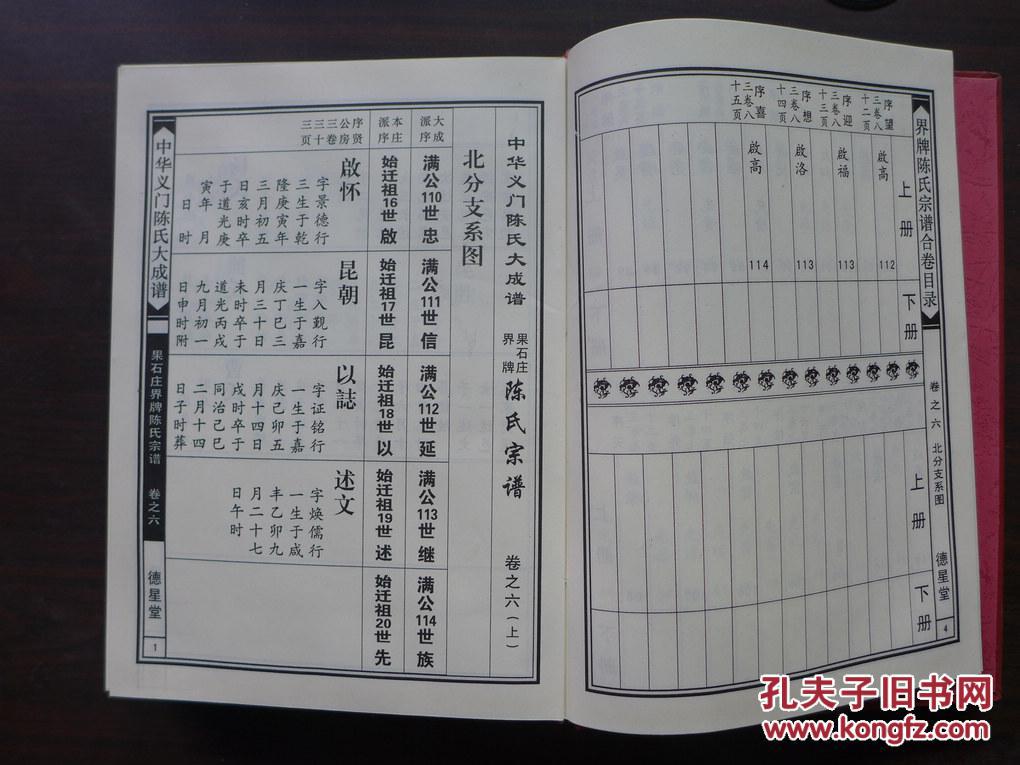 界牌陈氏宗谱合卷目录
卷之六
北分支系图
德星堂
4
上册
下册
上册
下册
序望
三卷八
十二页
啟高
112
序迎
三卷八
十三页
啟福
113
序想
三卷八
十四页
啟洛
113
序喜
三卷八
十五页
啟高
114
中华义门陈氏大成谱
果石庄
界牌
陈氏宗谱
卷之六（上）
北分支系图
大成
派序
满公110世忠
满公111世信
满公112世延
满公113世继
满公114世族
本庄
派序
始迁祖16世啟
始迁祖17世昆
始迁祖18世以
始迁祖19世述
始迁祖20世先
序贤
公房
三卷
三十
三页
啟怀
字景德行
三生于乾
隆庚寅年
三月初五
日亥时卒
于道光庚
寅年月
日时
昆朝
字入觐行
一生于嘉
庆丁巳三
月三十日
未时卒于
道光丙戌
九月初一
日申时附
以誌
字证铭行
一生于嘉
庆己卯五
月十四日
戌时卒于
同治己巳
二月十四
日子时葬
述文
字焕儒行
一生于咸
丰乙卯九
月二十七
日午时
中华义门陈氏大成谱
果石庄界牌陈氏宗谱
卷之六
德星堂
1
孔夫子旧书网
www.kongfz.com